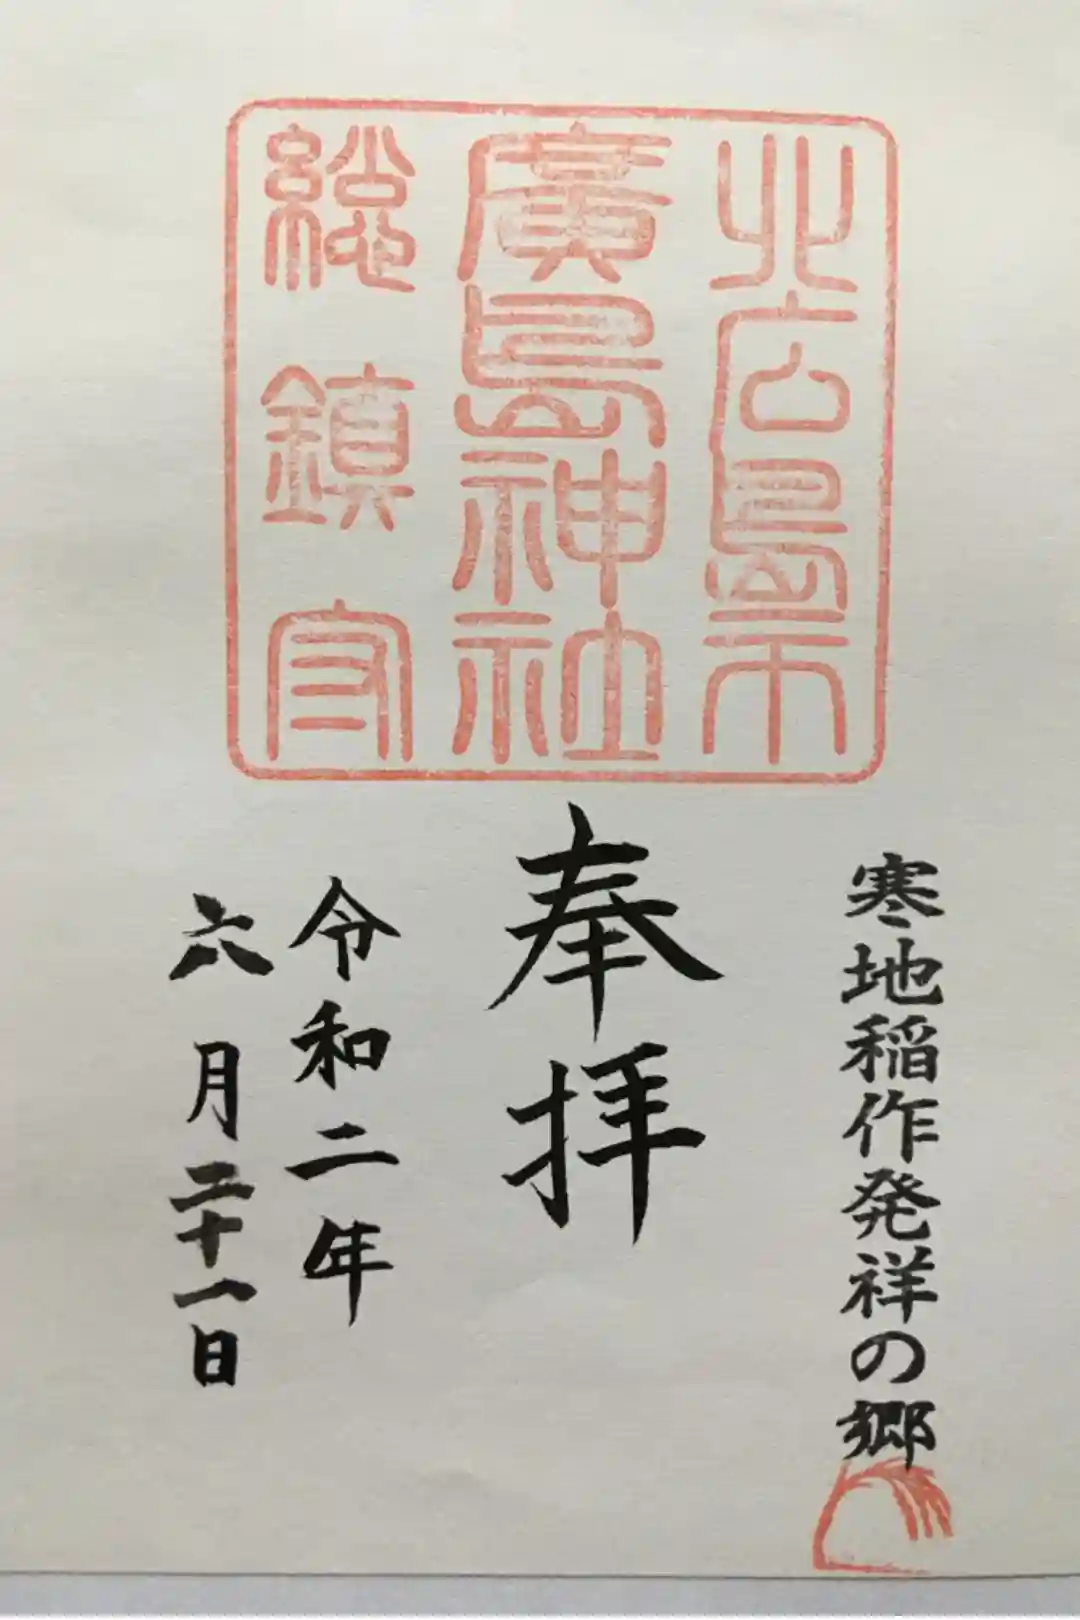 北広島市
廣島神社
総鎮守
寒地稲作発祥の郷
奉拝
令和二年
六月二十一日